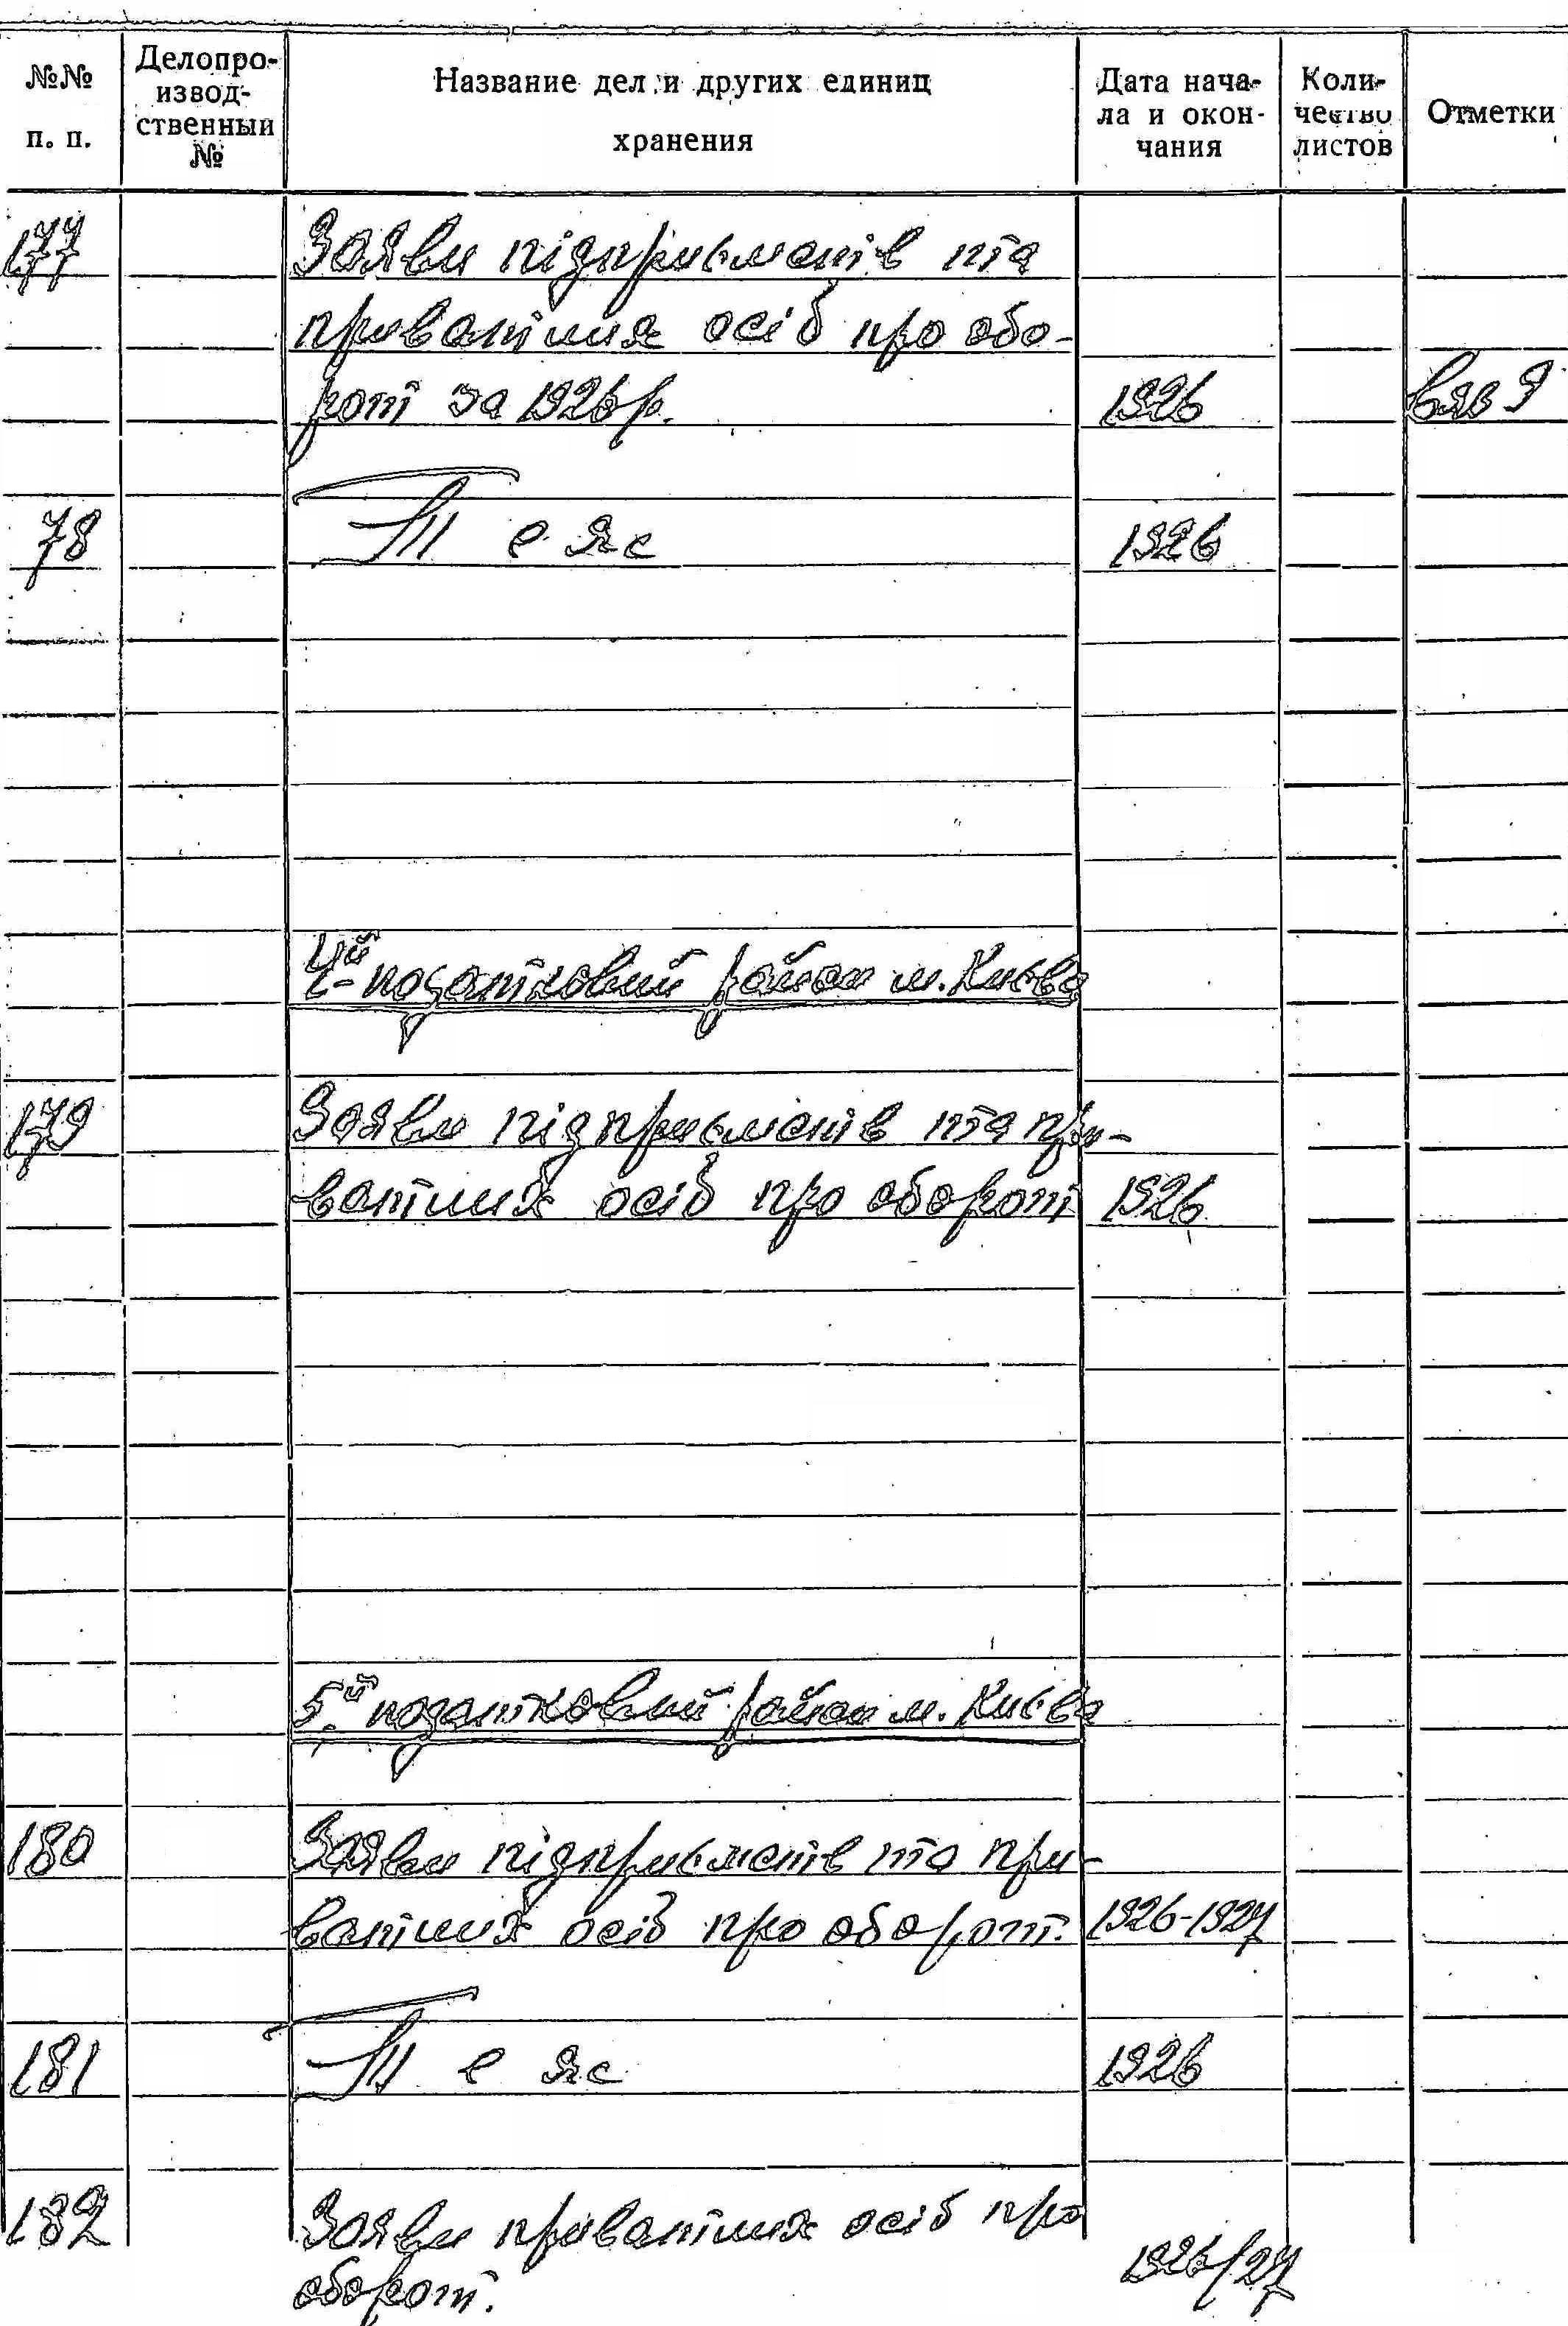 №№ п. п. Делопро-изводственный № Название дел и других единиц хранения Дата начала и окончания Количество листов Отметки
177 Заяви підприємств та
приватних осіб про обо-
рот за 1926 р. 1926 Вяз 9
78 Теж 1926
4-й податковий район м. Києва
179 Заяви підприємств та при-
ватних осіб про оборот 1926
5-й податковий район м. Києва
180 Заяви підприємств та при-
ватних осіб про оборот. 1926-1927
181 Теж 1926
182 Заяви приватних осіб про
оборот. 1926/27